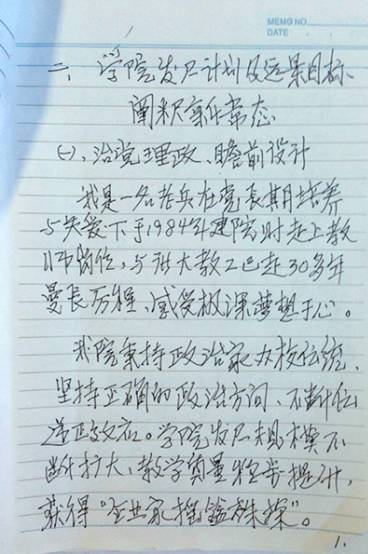 MEMO NO.
DATE
二、学院发展计划及远景目标、
阐释新常态
㈠、治党理政、瞻前设计
我是一名老兵在党长期培养
与关爱下于1984年建院时走上教
师岗位，与诸大教工已走30多年
曼长历程、感受极深梦想于心。
我院秉持政治家办校传统，
坚持正确的政治方向、不断传
递正效应。学院发展规模不
断扩大、教学质量稳步提升，
获得“企业家摇篮殊荣”。
1.